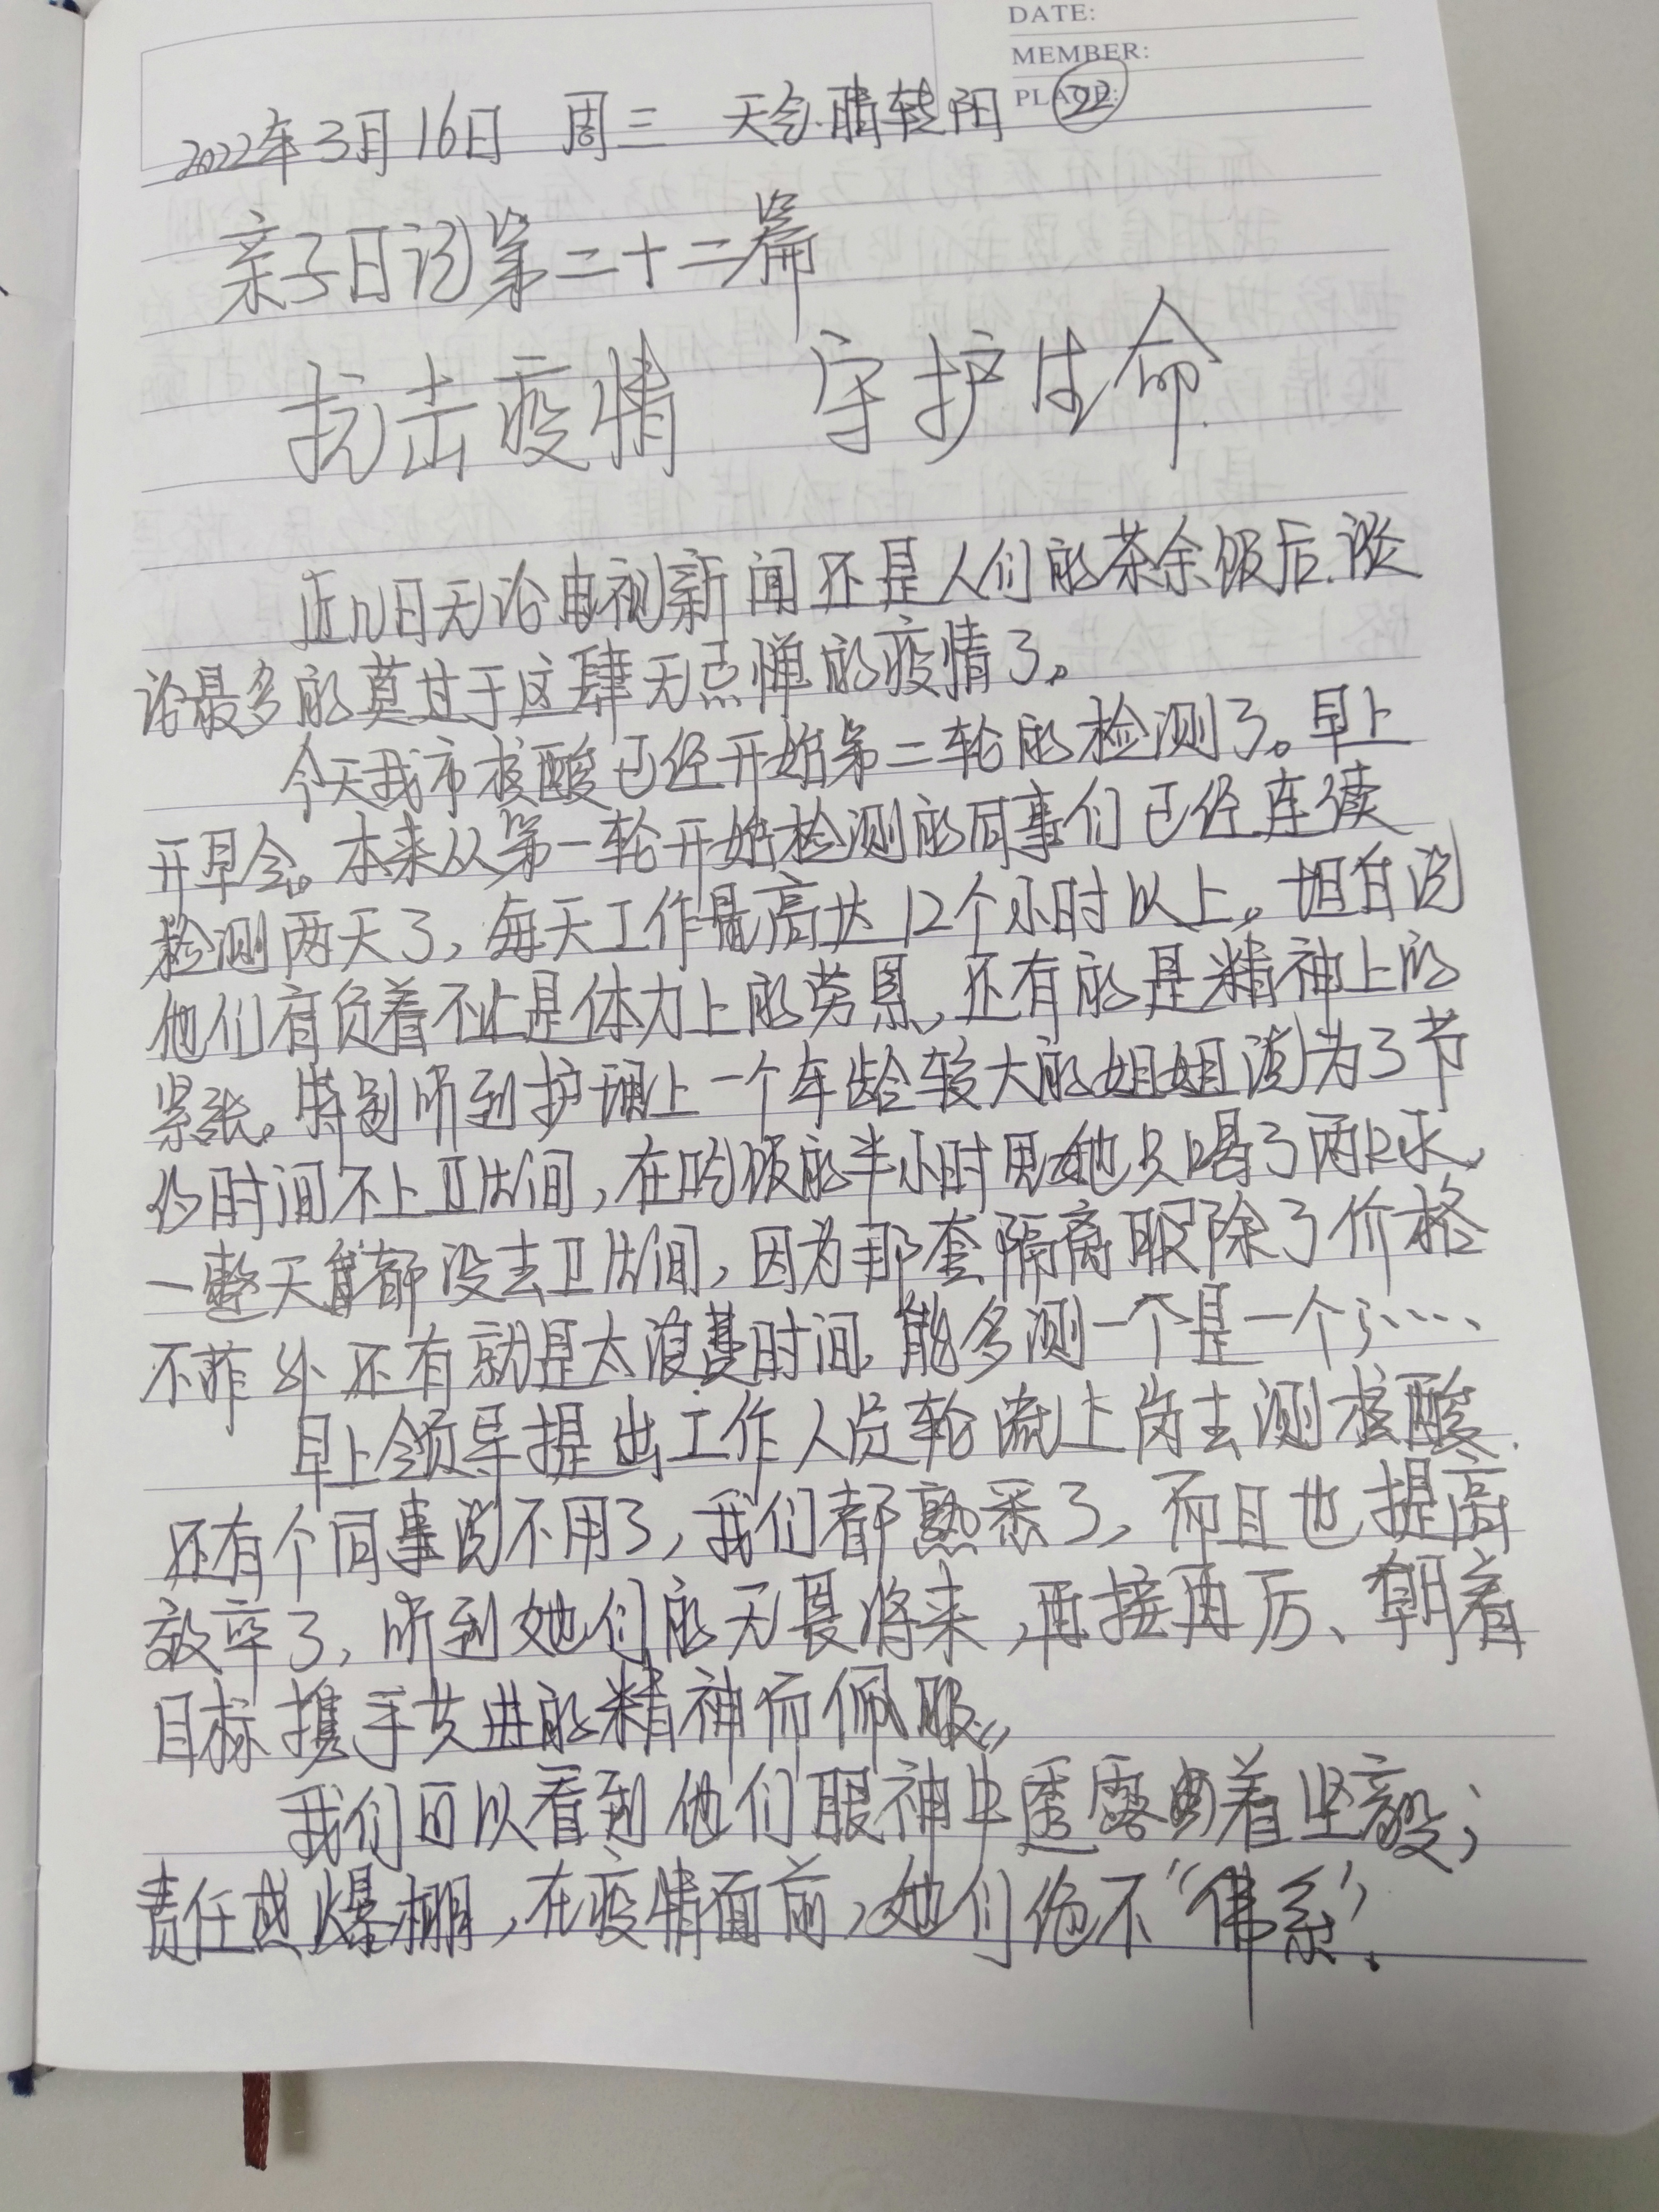 DATE:
MEMBER:
PLACE:
2022年3月16日 周三 天气:晴转阴 22
亲子日记第二十二篇
抗击疫情 守护生命
近几日无论电视新闻还是人们的茶余饭后.谈
论最多的莫过于这肆无忌惮的疫情了。
今天我市核酸已经开始第二轮的检测了。早上
开早会。本来从第一轮开始检测的同事们已经连续
检测两天了,每天工作最高达12个小时以上。坦白说
他们肩负着不止是体力上的劳累,还有的是精神上的
紧张。特别听到护理上一个年龄较大的姐姐说为了节
约时间不上卫生间,在吃饭的半小时里她只喝了两口水,
一整天都没去卫生间,因为那套隔离服除了价格
不菲外还有就是太浪费时间,能多测一个是一个……
早上领导提出工作人员轮流上岗去测核酸.
还有个同事说不用了,我们都熟悉了,而且也提高
效率了,听到她们的无畏将来,再接再厉、朝着
目标携手共进的精神而佩服。
我们可以看到他们眼神中透露着坚毅;
责任感爆棚,在疫情面前,她们绝不“伟系”.